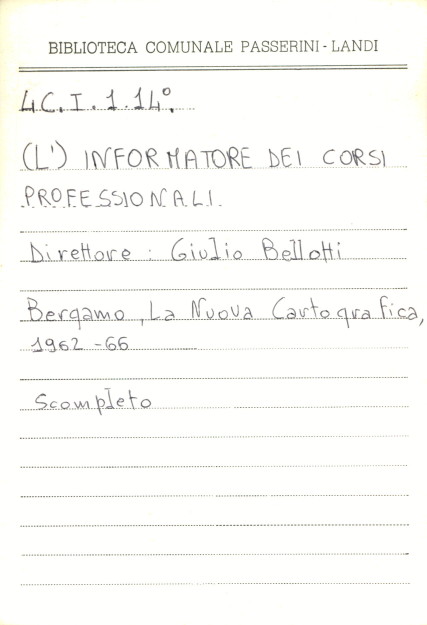 BIBLIOTECA COMUNALE PASSERINI - LANDI
4C. I. 1.14°.
(L') INFORMATORE DEI CORSI
PROFESSIONALI.
Direttore : Giulio Bellotti
Bergamo, La Nuova Cartografica,
1962 - 66
Scompleto